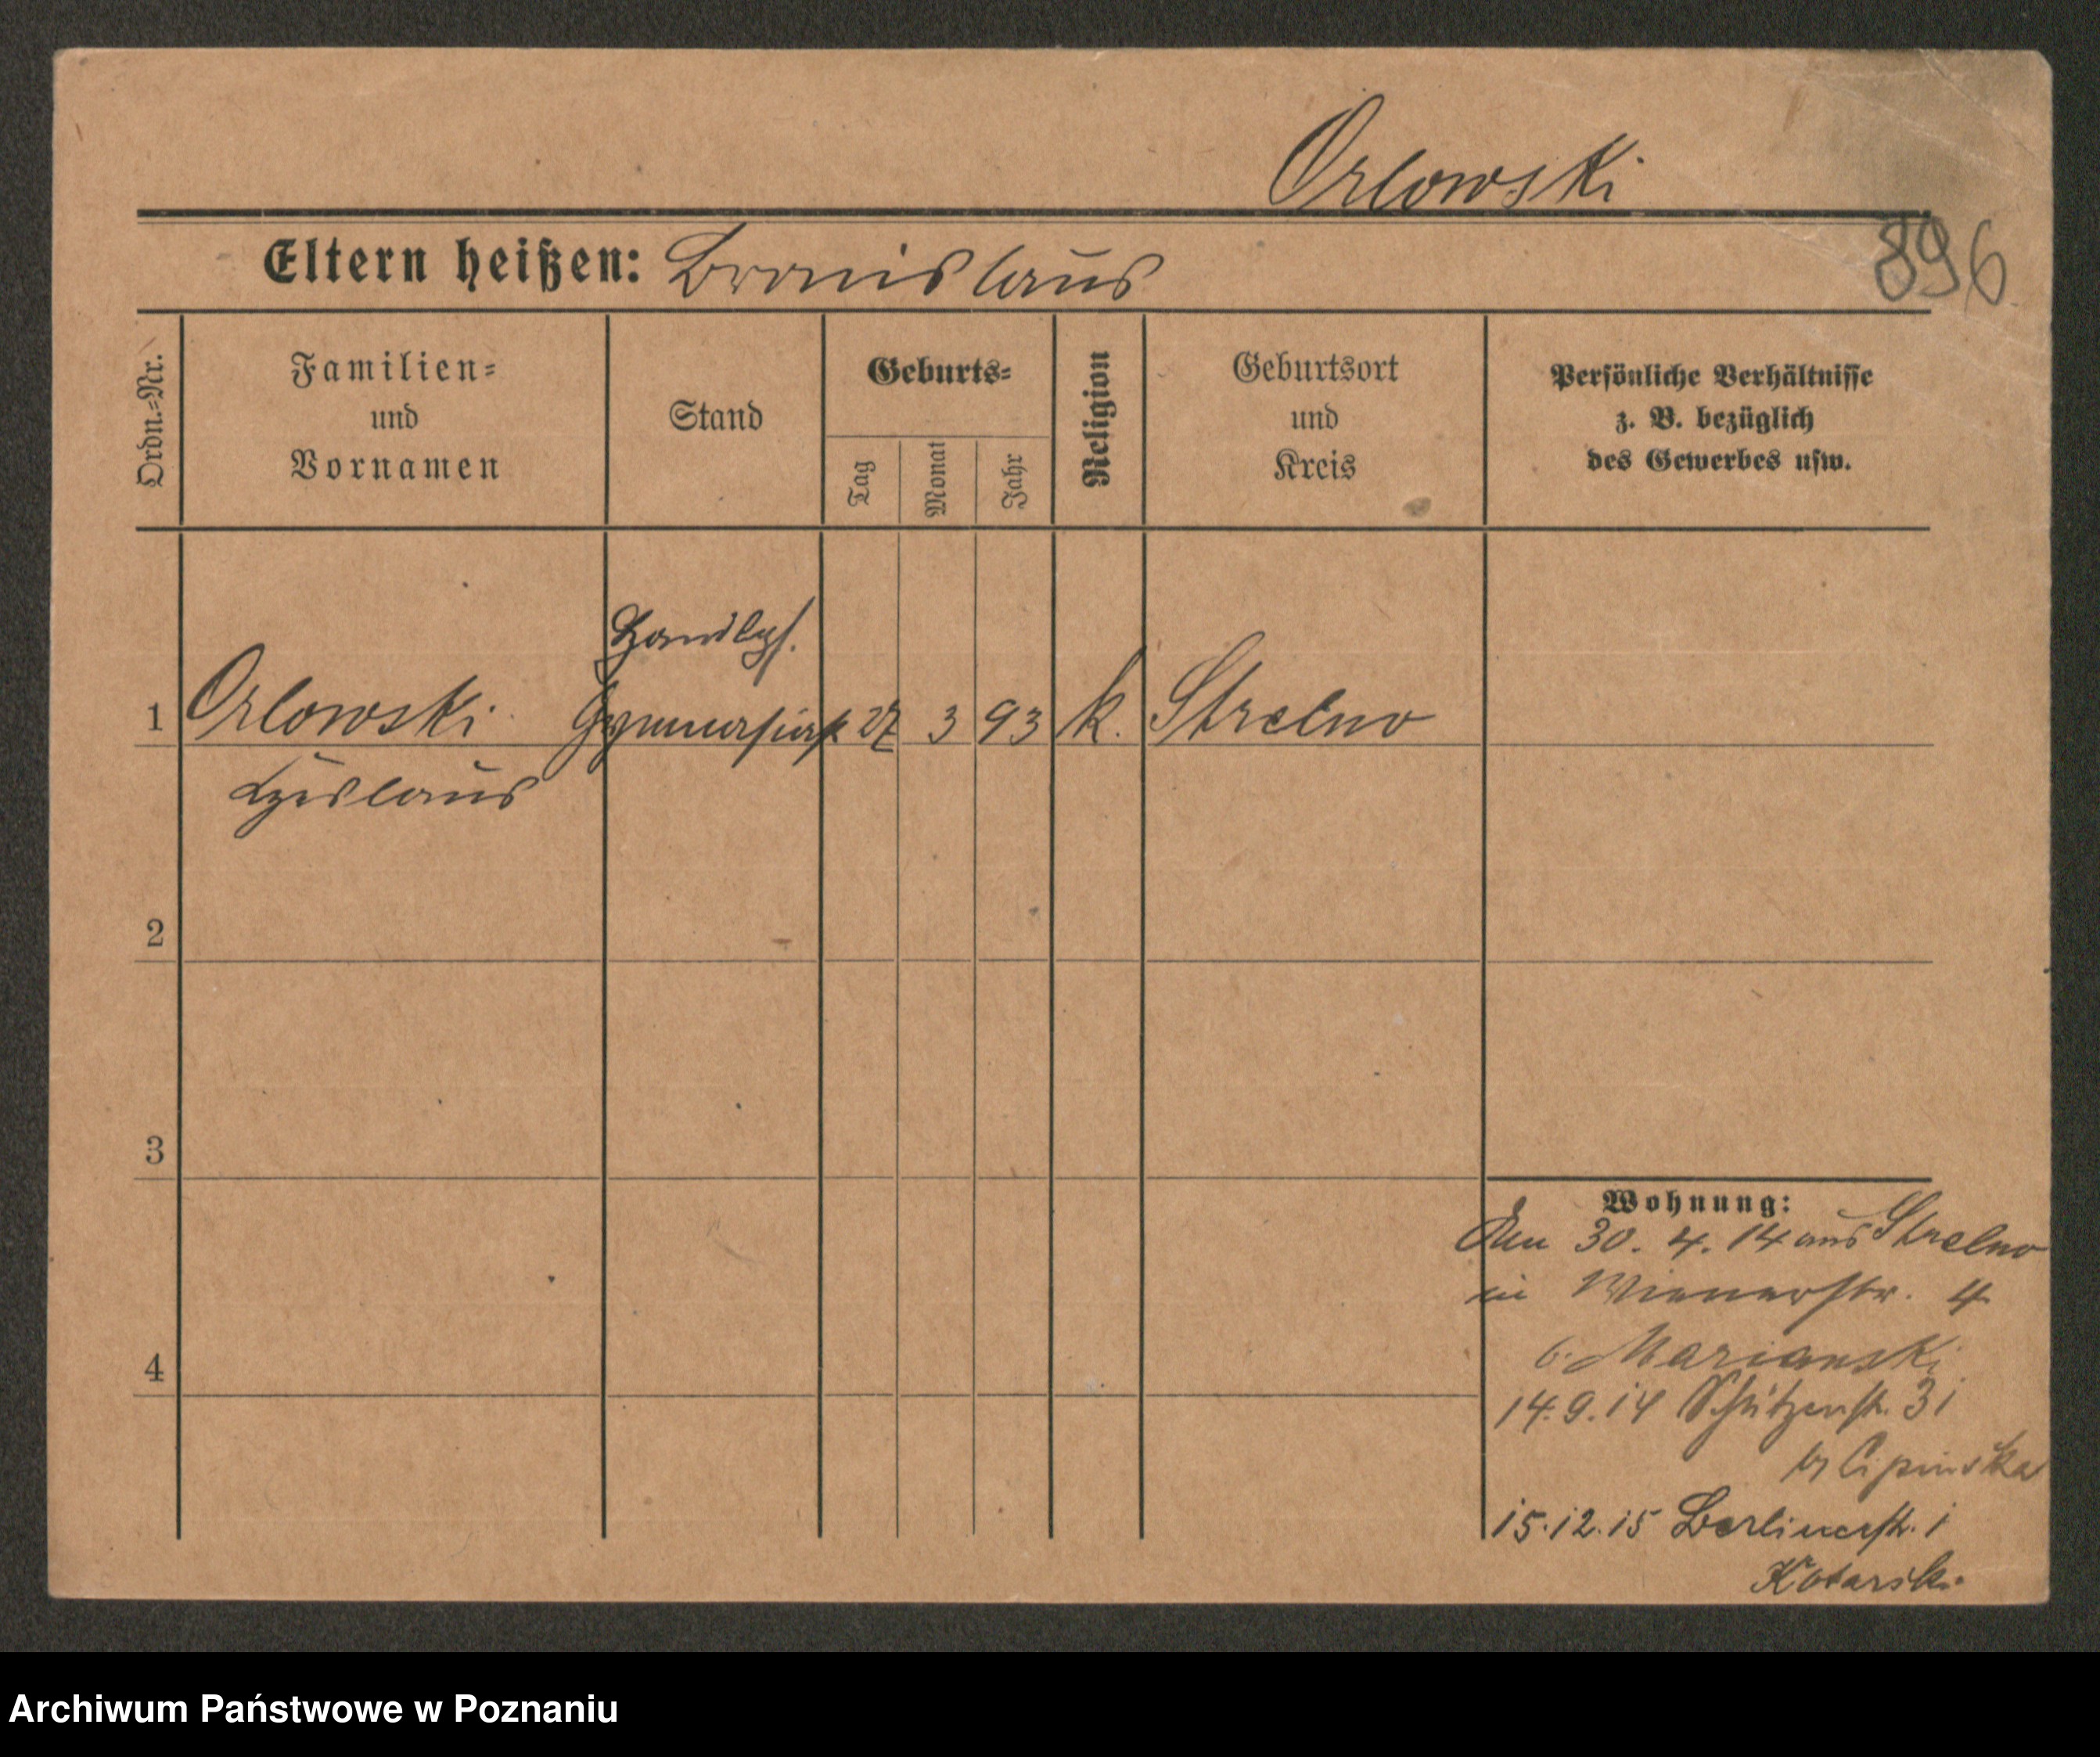 Orlowski
Eltern heißen: Bronislaus
896
Ordn.=Nr.
Familien=
und
Vornamen
Stand
Geburts=
Tag
Monat
Jahr
Religion
Geburtsort
und
Kreis
Persönliche Verhältnisse
z. B. bezüglich
des Gewerbes usw.
1 Orlowski 27 3 93 k. Strelno
2
3
4
Wohnung:
Den 30. 4. 14 aus Strelno
in Wienerstr. 4
b. Marianski
14.9.14 Schützenstr. 31
15.12.15 Berlinerstr. 1
Kotarski
Archiwum Państwowe w Poznaniu